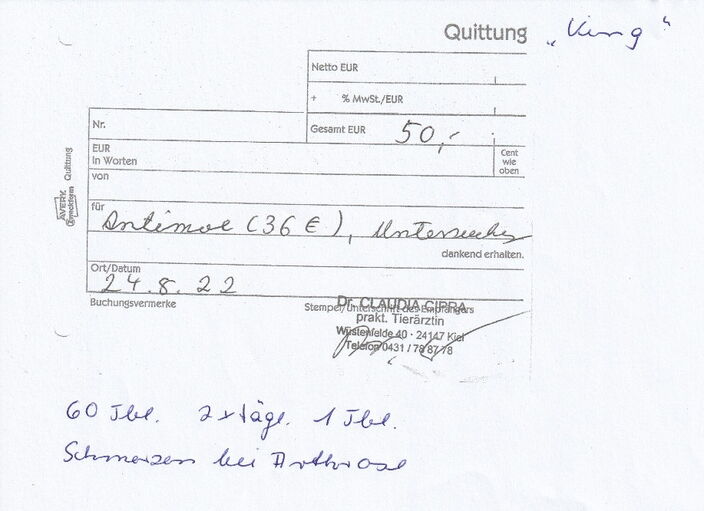 Quittung
„King“
Netto EUR
+ % MwSt./EUR
Nr.
Gesamt EUR 50,-
EUR
in Worten
Cent
wie
oben
von
für
Antimoe (36 €), Untersuchg
dankend erhalten.
Ort/Datum
24.8.22
Buchungsvermerke
Stempel/Unterschrift des Empfängers
Dr. CLAUDIA CIPRA
prakt. Tierärztin
Wüstenfelde 40 · 24147 Kiel
Telefon 0431 / 78 87 78
AVERY
Zweckform
Quittung
60 Tbl. 2 x tägl. 1 Tbl.
Schmerzen bei Arthrose